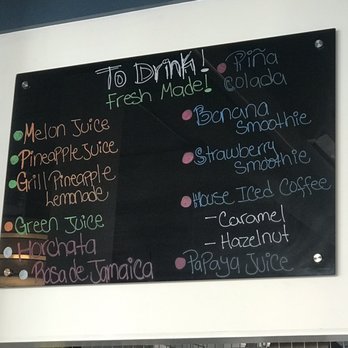 To Drink!
Fresh Made!
Melon Juice
Pineapple Juice
Grill Pineapple
Lemonade
Green Juice
Horchata
Rosa de Jamaica
Piña
colada
Banana
Smoothie
Strawberry
Smoothie
House Iced Coffee
- Caramel
- Hazelnut
Papaya Juice